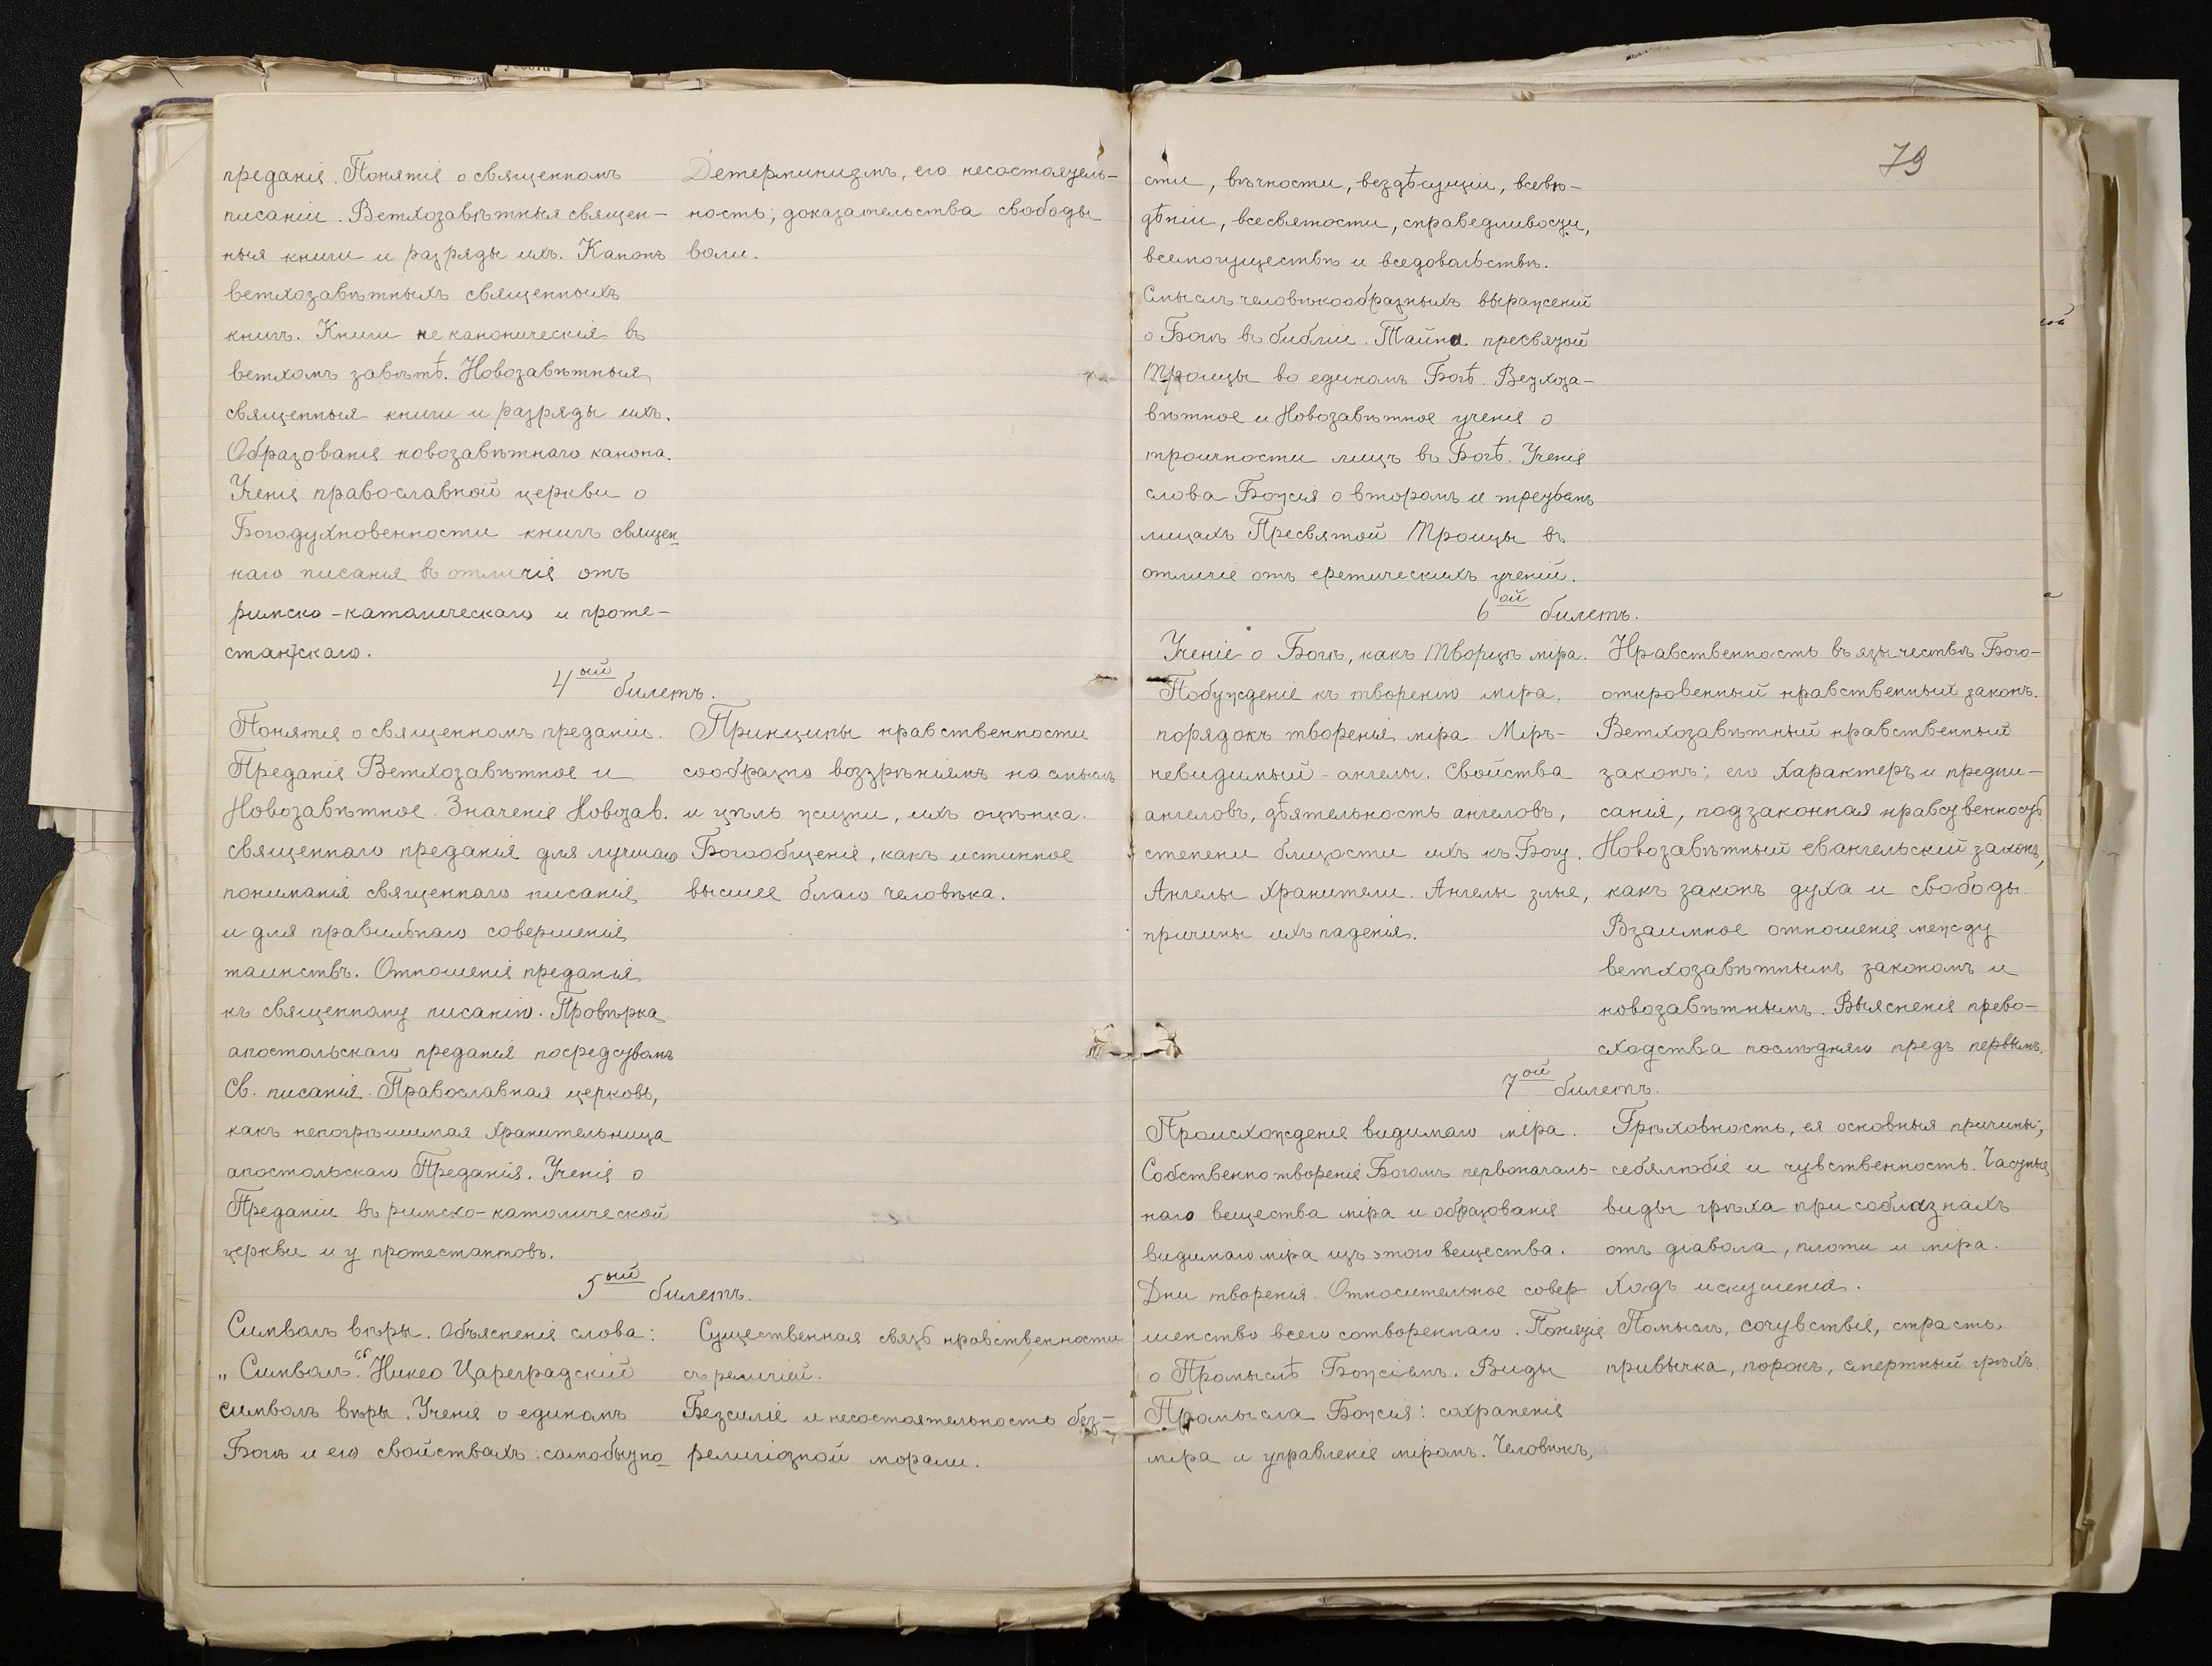 преданія. Понятіе о священномъ
писаніи. Ветхозавѣтныя священ-
ныя книги и разряды ихъ. Канонъ
ветхозавѣтныхъ священныхъ
книгъ. Книги не каноническія въ
ветхомъ завѣтѣ. Новозавѣтныя
священныя книги и разряды ихъ.
Образованіе новозавѣтнаго канона.
Ученіе православной церкви о
Богодухновенности книгъ священ-
наго писанія въ отличіе отъ
римско-католическаго и проте-
стантскаго.
Детерминизмъ, его несостоятель-
ность; доказательства свободы
воли.
4ый билетъ.
Понятіе о священномъ преданіи.
Преданіе Ветхозавѣтное и
Новозавѣтное. Значеніе Новозав.
священнаго преданія для лучшаго
пониманія священнаго писанія
и для правильнаго совершенія
таинствъ. Отношеніе преданія
къ священному писанію. Провѣрка
апостольскаго преданія посредствомъ
Св. писанія. Православная церковь,
какъ непогрѣшимая хранительница
апостольскаго Преданія. Ученіе о
Преданіи въ римско-католической
церкви и у протестантовъ.
Принципы нравственности
сообразно воззрѣніямъ на смыслъ
и цѣль жизни, ихъ оцѣнка.
Богообщеніе, какъ истинное
высшее благо человѣка.
5ый билетъ.
Символъ вѣры. Объясненіе слова:
„Символъ". Никео Цареградскій
символъ вѣры. Ученіе о единомъ
Богѣ и его свойствахъ: самобытно-
Существенная связь нравственности
съ религіей.
Безсиліе и несостоятельность без-
религіозной морали.
79
сти, вѣчности, вездѣсущіи, всевѣ-
дѣніи, всесвятости, справедливости,
всемогуществѣ и вседовольствѣ.
Смыслъ человѣкообразныхъ выраженій
о Богѣ въ библіи. Тайна пресвятой
Троицы во единомъ Богѣ. Ветхоза-
вѣтное и Новозавѣтное ученіе о
троичности лицъ въ Богѣ. Ученіе
слова Божія о второмъ и третьемъ
лицахъ Пресвятой Троицы въ
отличіе отъ еретическихъ ученій.
6ой билетъ.
Ученіе о Богѣ, какъ Творцѣ міра.
Побужденіе къ творенію міра,
порядокъ творенія міра. Міръ-
невидимый - ангелы. Свойства
ангеловъ, дѣятельность ангеловъ,
степени близости ихъ къ Богу.
Ангелы Хранители. Ангелы злые,
причины ихъ паденія.
Нравственность въ язычествѣ Бого-
откровенный нравственный законъ.
Ветхозавѣтный нравственный
законъ; его характеръ и предпи-
санія, подзаконная нравственность
Новозавѣтный евангельскій законъ,
какъ законъ духа и свободы.
Взаимное отношеніе между
ветхозавѣтнымъ закономъ и
новозавѣтнымъ. Выясненіе прево-
сходства послѣдняго предъ первымъ.
7ой билетъ.
Происхожденіе видимаго міра.
Собственно твореніе Богомъ первоначаль-
наго вещества міра и образованіе
видимаго міра изъ этого вещества.
Дни творенія. Относительное совер
шенство всего сотвореннаго. Понятіе
о Промыслѣ Божіемъ. Виды
Промысла Божія: сохраненіе
міра и управленіе міромъ. Человѣкъ,
Грѣховность, ея основныя причины;
себялюбіе и чувственность. Частные
виды грѣха при соблазнахъ
отъ діавола, плоти и міра.
Ходъ искушенія.
Помыслъ, сочувствіе, страсть,
привычка, порокъ, смертный грѣхъ.